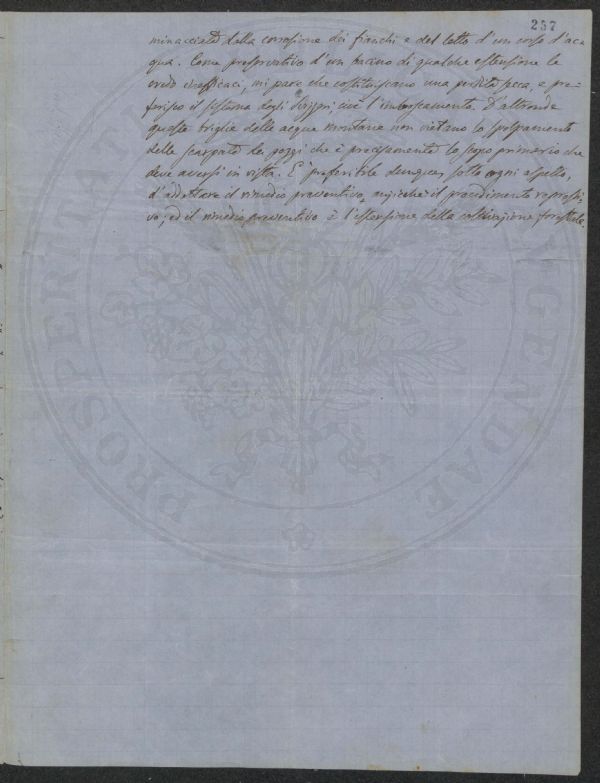 237
minacciato dalla corrosione dei fianchi e del letto d'un corso d'ac=
qua. Come preservativo d'un bacino di qualche estensione le
credo inefficaci, mi pare che costituiscano una perdita secca, e pre=
ferisco il sistema degli Svizzeri, cioè l'imboscamento. D'altronde
queste briglie delle acque montane non vietano lo spolpamento
delle scarpate dei poggi che è precisamente lo scopo primario che
deve aversi in vista. È preferibile dunque, sotto ogni aspetto,
d'adottare il rimedio preventivo, anzichè il procedimento repressi=
vo; ed il rimedio preventivo è l'estensione della coltivazione forestale.
PROSPERITATI AUGENDAE